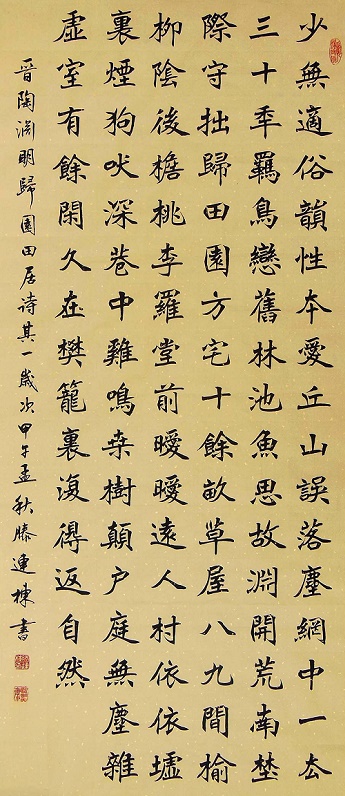 少無適俗韻性夲愛丘山誤落塵網中一厺
三十秊羈鳥戀舊林池魚思故淵開荒南埜
際守拙歸田園方宅十餘畝草屋八九間榆
柳陰後檐桃李羅堂前曖曖遠人村依依墟
裏煙狗吠深巷中雞鳴桒樹顛户庭無塵雜
虛室有餘閑久在樊籠裏復得返自然
晉陶淵明歸園田居诗其一歲次甲午孟秋滕連棟書